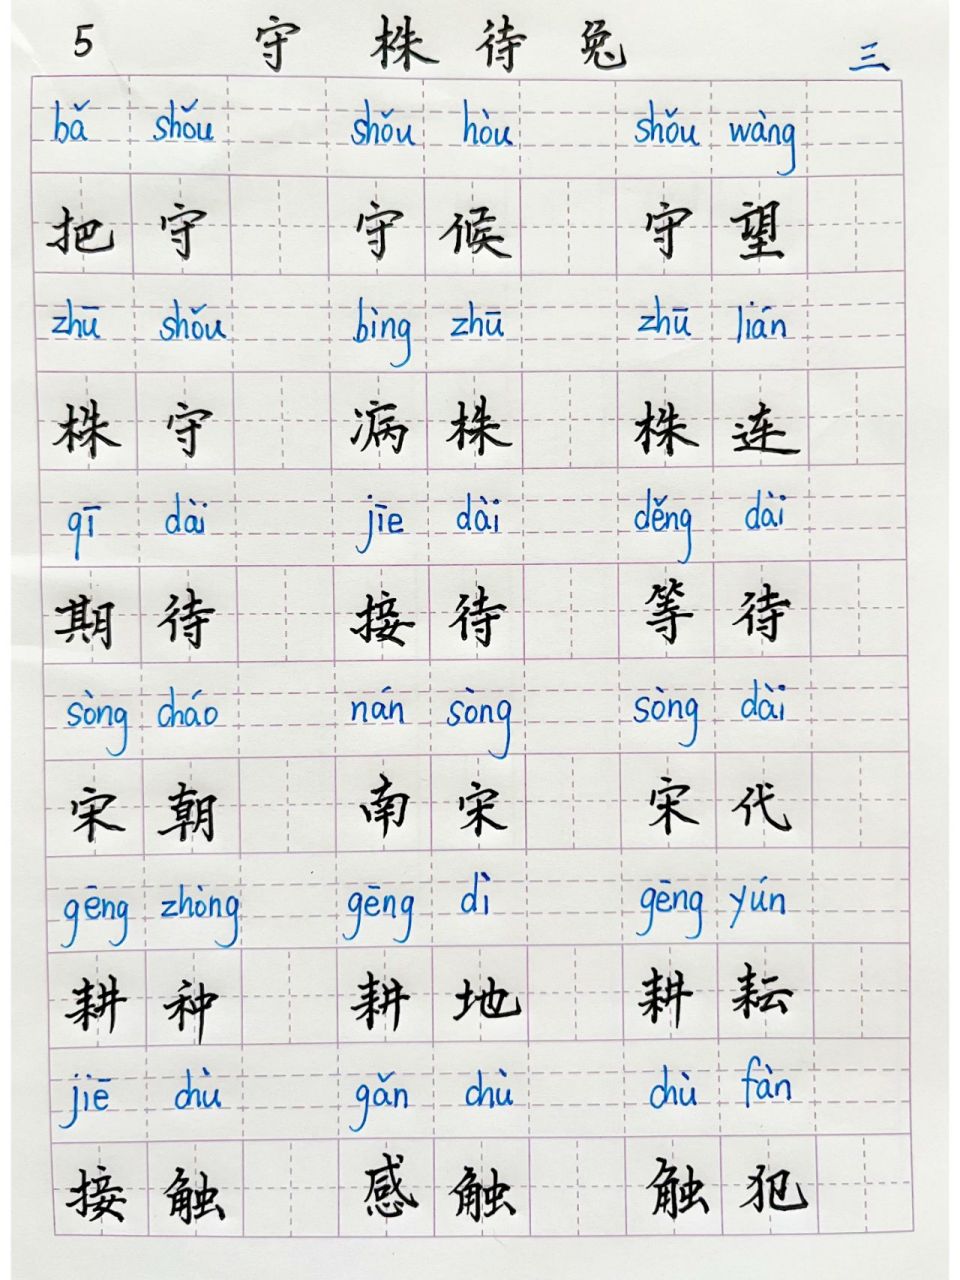 5 守株待兔 三
bǎ shǒu shǒu hòu shǒu wàng
把守 守候 守望
zhū shǒu bìng zhū zhū lián
株守 病株 株连
qī dài jīe dài děng dài
期待 接待 等待
sòng cháo nán sòng sòng dài
宋朝 南宋 宋代
gēng zhòng gēng dì gēng yún
耕种 耕地 耕耘
jiē chù gǎn chù chù fàn
接触 感触 触犯